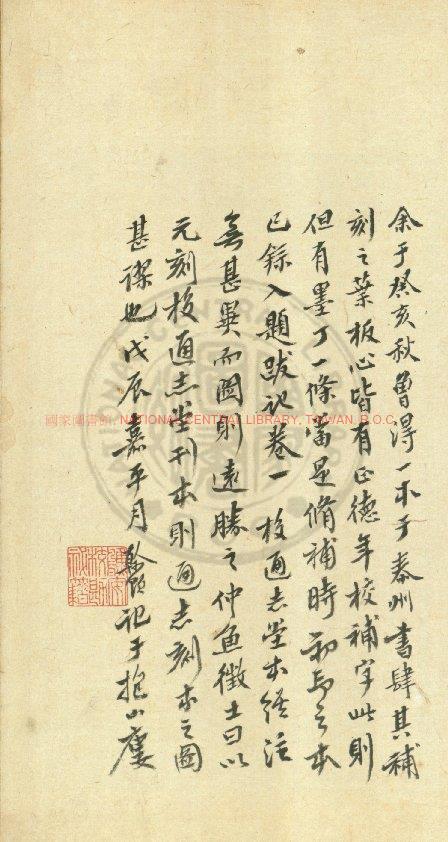 余于癸亥秋曾得一本于泰州書肆其補
刻之葉板心皆有正德年校補字此則
但有墨丁一條當是脩補時初印之本
已錄入題跋記卷一校通志堂本經注
無甚異而圖則遠勝之仲魚徵士曰以
元刻校通志堂刊本則通志刻本之圖
甚謬也戊辰嘉平月 記于抱山廔
國家圖書館, NATIONAL CENTRAL LIBRARY, TAIWAN, R.O.C.